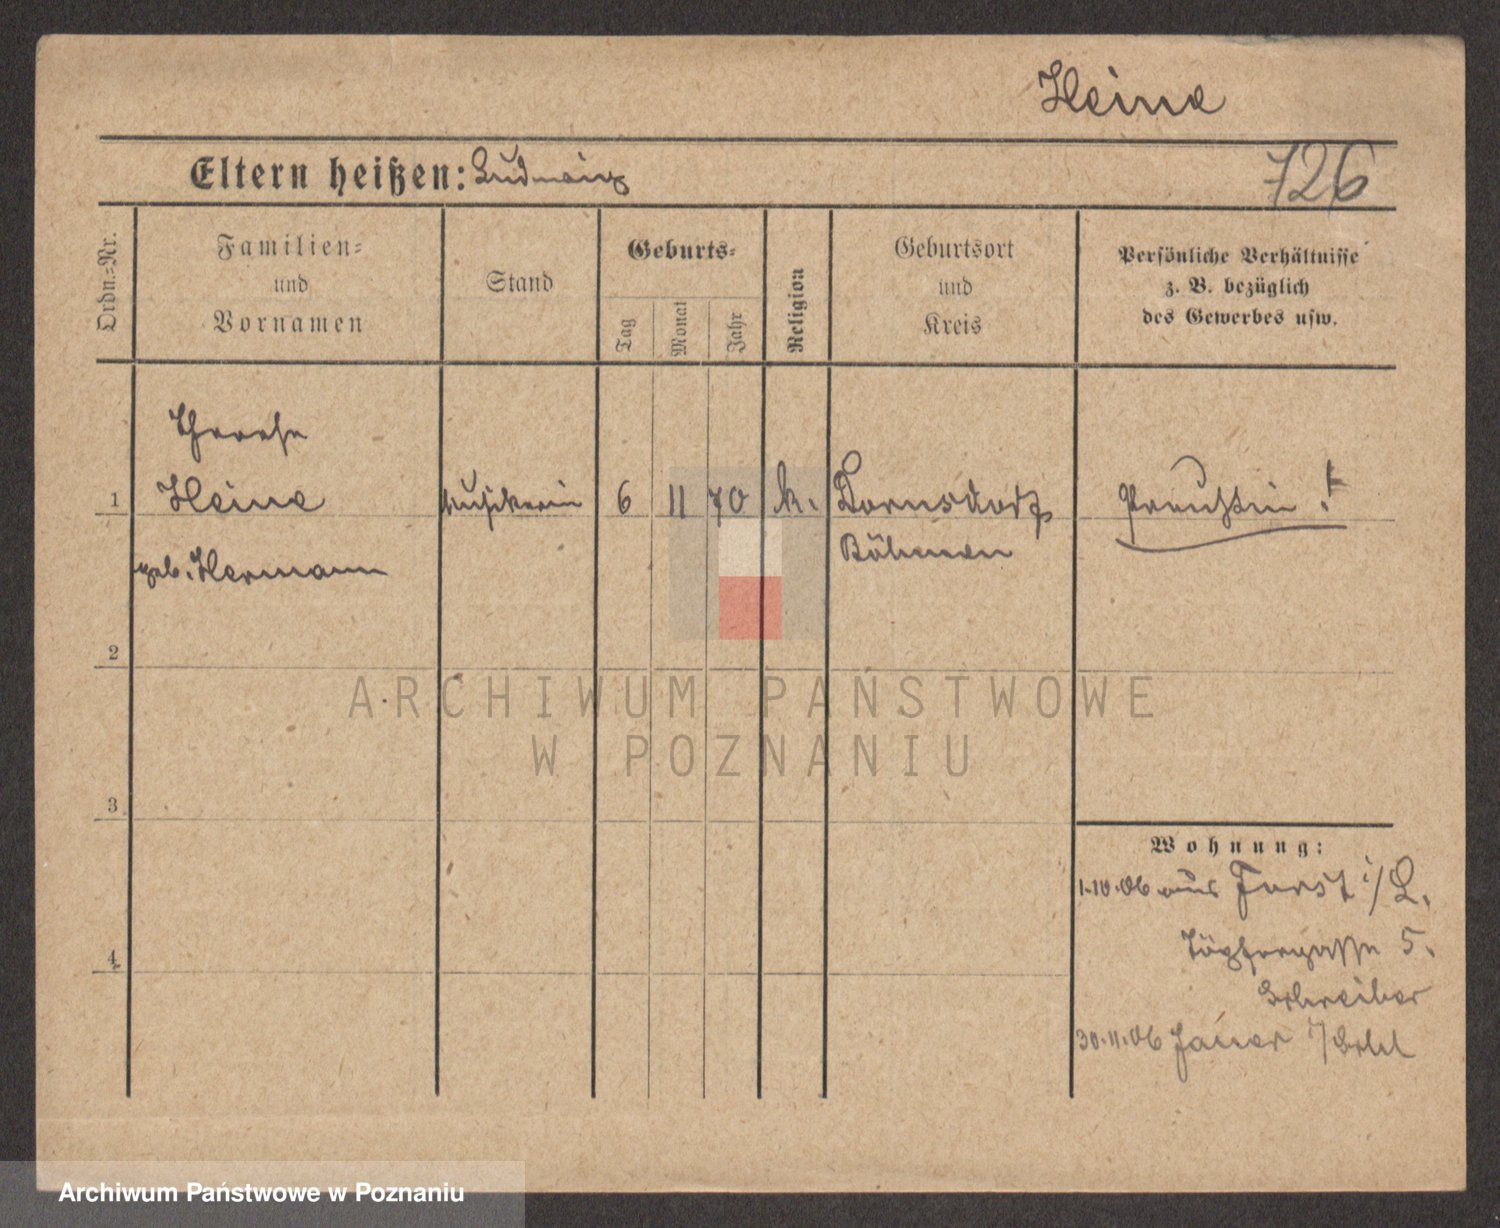 Heine
Eltern heißen: Ludwig
726
Ordn.-Nr.
Familien-
und
Vornamen
Stand
Geburts-
Tag
Monat
Jahr
Religion
Geburtsort
und
Kreis
Persönliche Verhältnisse
z. B. bezüglich
des Gewerbes usw.
Therese
1 Heine Musikerin 6 11 70 k.
Böhmen
geb. Hermann
Preußin
2
ARCHIWUM PAŃSTWOWE
W POZNANIU
3
Wohnung:
1.10.06 aus Forst i/L.
4
Töpfergasse 5.
Schreiber
30.11.06 Jauer
Archiwum Państwowe w Poznaniu